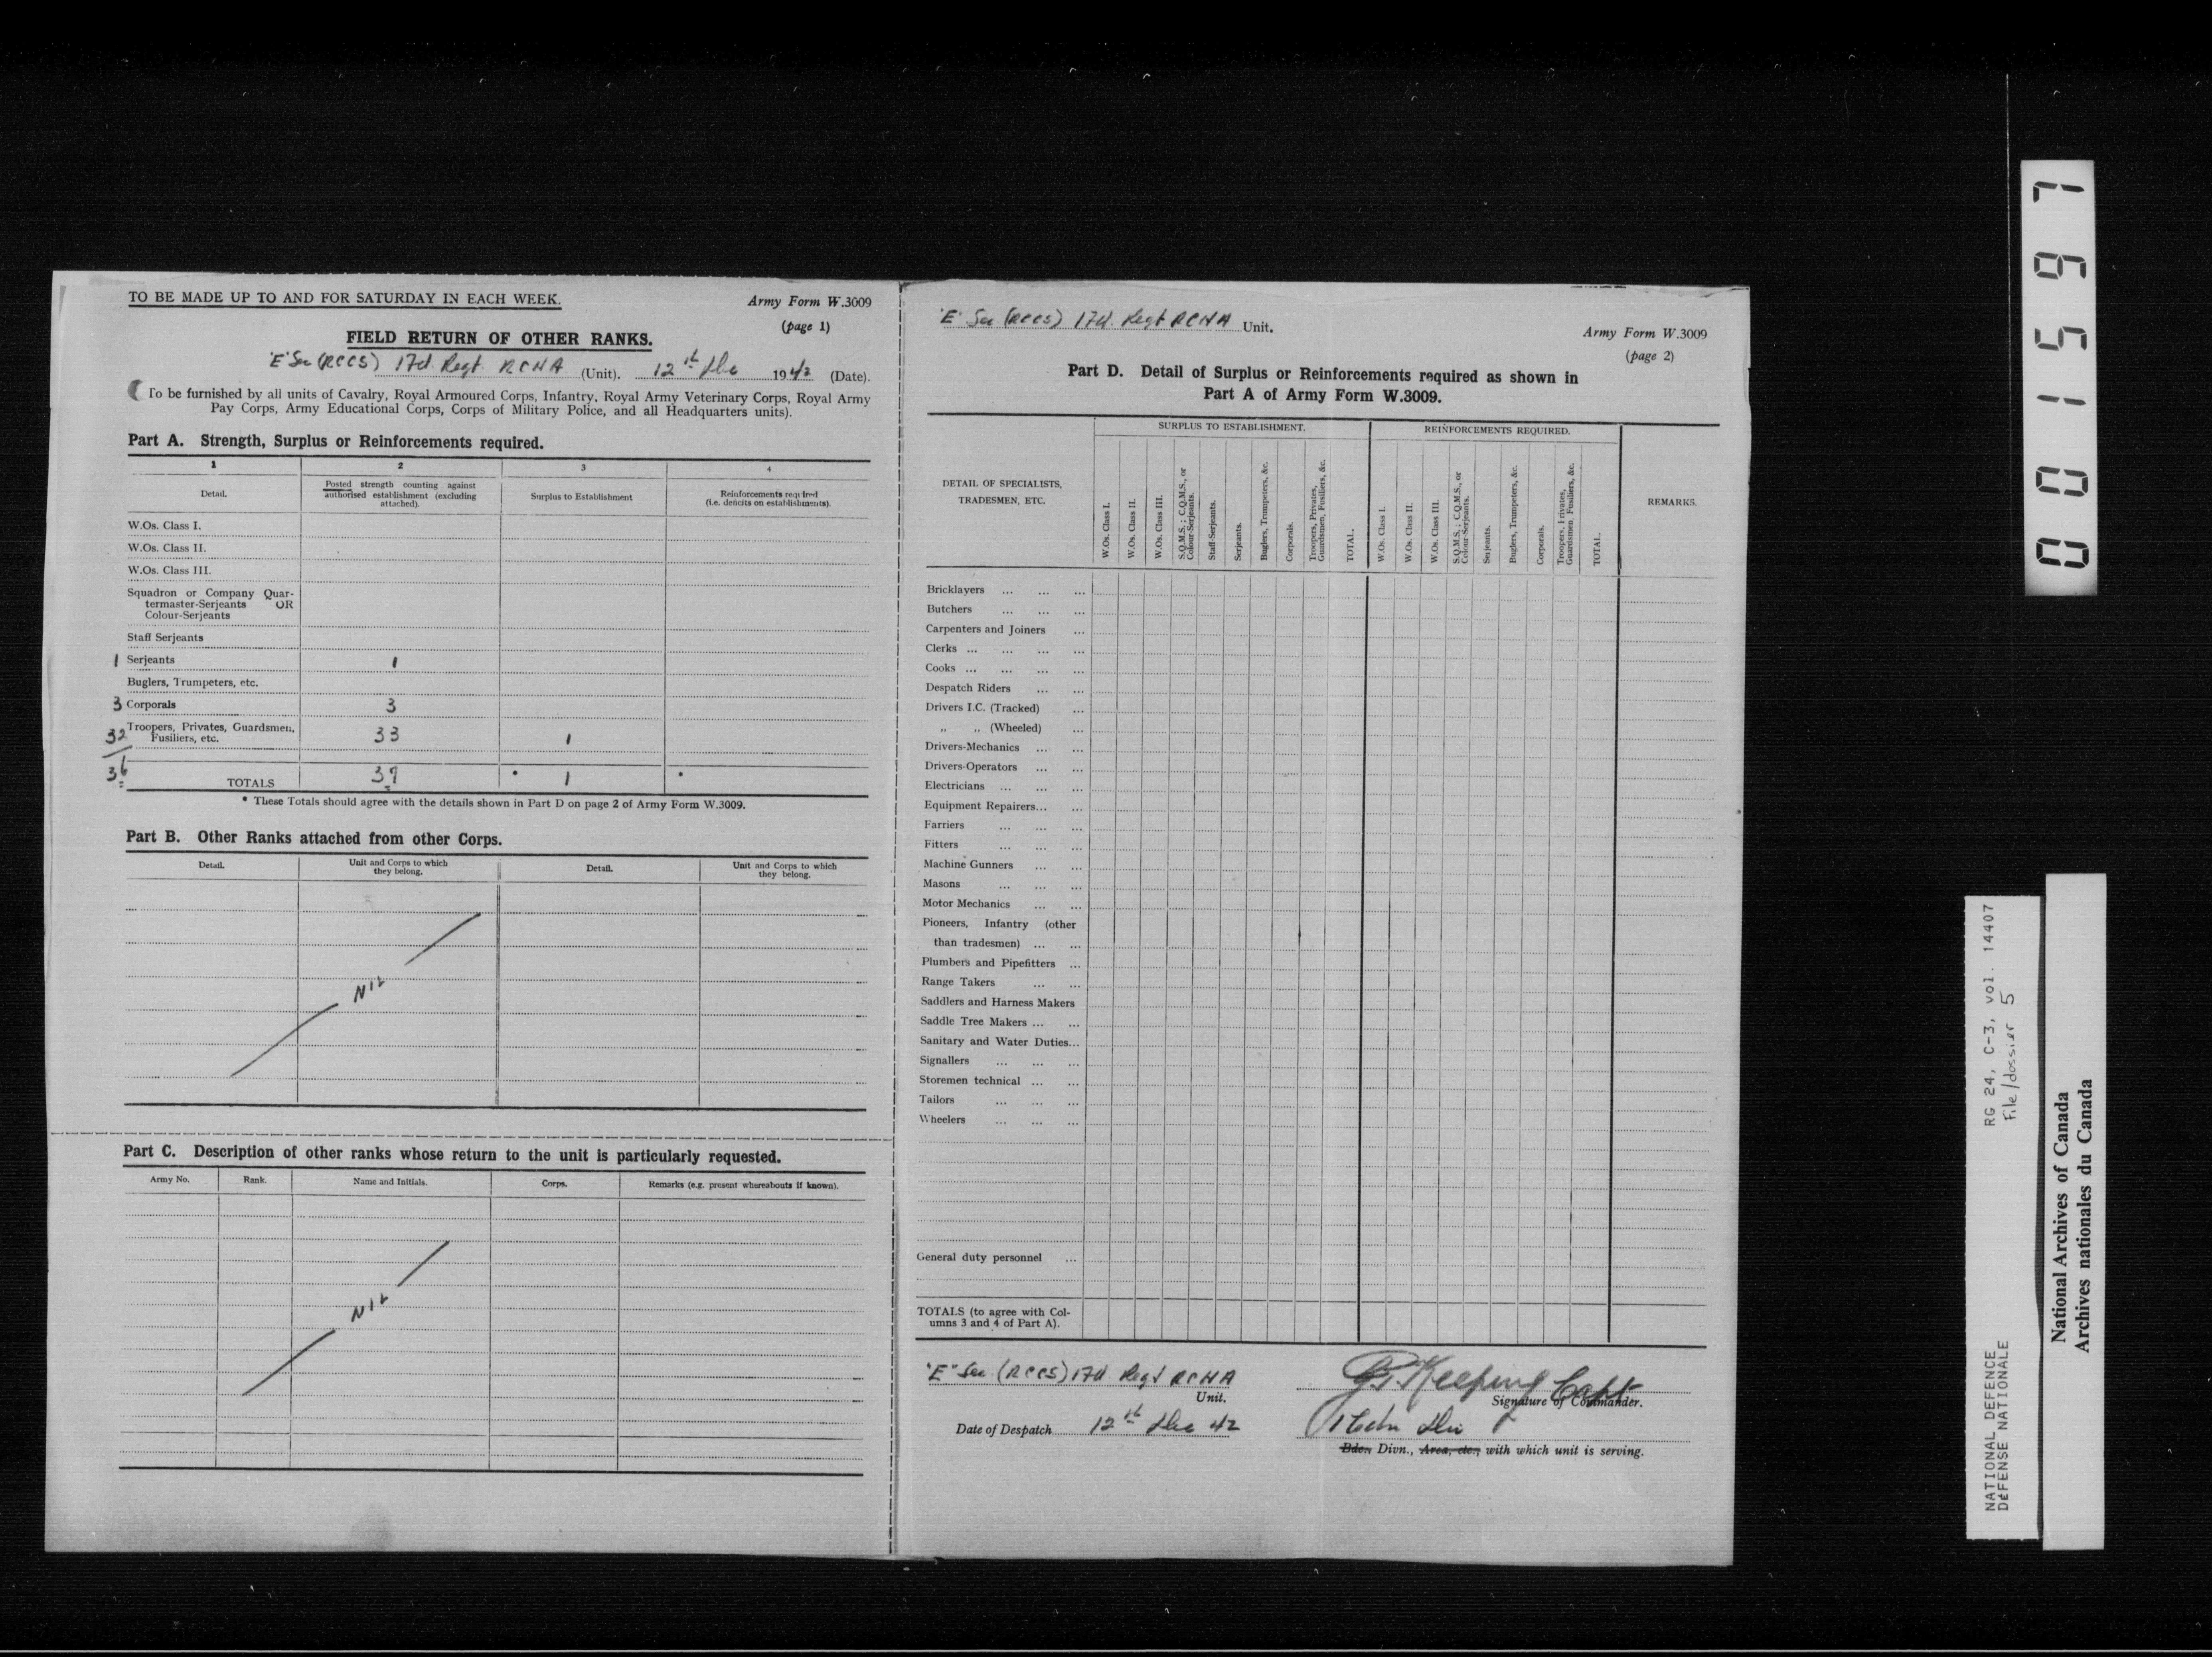 TO BE MADE UP TO AND FOR SATURDAY IN EACH WEEK.
Army Form W.3009
(page 1)
FIELD RETURN OF OTHER RANKS.
"E" Sec (RCCS) 17th Regt. RCHA (Unit). 12th Dec 1942 (Date).
To be furnished by all units of Cavalry, Royal Armoured Corps, Infantry, Royal Army Veterinary Corps, Royal Army
Pay Corps, Army Educational Corps, Corps of Military Police, and all Headquarters units).
Part A. Strength, Surplus or Reinforcements required.
1 2 3 4
Detail.
Posted strength counting against
authorised establishment (excluding
attached).
Surplus to Establishment
Reinforcements required
(i.e. deficits on establishments).
W.Os. Class I.
W.Os. Class II.
W.Os. Class III.
Squadron or Company Quar-
termaster-Serjeants OR
Colour-Serjeants
Staff Serjeants
1 Serjeants 1
Buglers, Trumpeters, etc.
3 Corporals 3
32 Troopers, Privates, Guardsmen,
Fusiliers, etc. 33 1
36 TOTALS 37 * 1 *
* These Totals should agree with the details shown in Part D on page 2 of Army Form W.3009.
Part B. Other Ranks attached from other Corps.
Detail.
Unit and Corps to which
they belong.
Detail.
Unit and Corps to which
they belong.
NIL
Part C. Description of other ranks whose return to the unit is particularly requested.
Army No. Rank. Name and Initials. Corps. Remarks (e.g. present whereabouts if known).
NIL
"E" Sec (RCCS) 17th Regt RCHA Unit.
Army Form W.3009
(page 2)
Part D. Detail of Surplus or Reinforcements required as shown in
Part A of Army Form W.3009.
DETAIL OF SPECIALISTS,
TRADESMEN, ETC.
SURPLUS TO ESTABLISHMENT.
W.Os. Class I.
W.Os. Class II.
W.Os. Class III.
S.Q.M.S.; C.Q.M.S., or
Colour-Serjeants.
Staff-Serjeants.
Serjeants.
Buglers, Trumpeters, &c.
Corporals.
Troopers, Privates,
Guardsmen, Fusiliers, &c.
TOTAL.
REINFORCEMENTS REQUIRED.
W.Os. Class I.
W.Os. Class II.
W.Os. Class III.
S.Q.M.S.; C.Q.M.S., or
Colour-Serjeants.
Serjeants.
Buglers, Trumpeters, &c.
Corporals.
Troopers, Privates,
Guardsmen, Fusiliers, &c.
TOTAL.
REMARKS.
Bricklayers ... ... ...
Butchers ... ... ...
Carpenters and Joiners ...
Clerks ... ... ... ...
Cooks ... ... ... ...
Despatch Riders ... ...
Drivers I.C. (Tracked) ...
„ „ (Wheeled) ...
Drivers-Mechanics ... ...
Drivers-Operators ... ...
Electricians ... ... ...
Equipment Repairers... ...
Farriers ... ... ...
Fitters ... ... ...
Machine Gunners ... ...
Masons ... ... ...
Motor Mechanics ... ...
Pioneers, Infantry (other
than tradesmen) ... ...
Plumbers and Pipefitters ...
Range Takers ... ...
Saddlers and Harness Makers
Saddle Tree Makers ... ...
Sanitary and Water Duties...
Signallers ... ... ...
Storemen technical ... ...
Tailors ... ... ...
Wheelers ... ... ...
General duty personnel ...
TOTALS (to agree with Col-
umns 3 and 4 of Part A).
"E" Sec (RCCS) 17th Regt RCHA
Unit.
Keeping Capt
Signature of Commander.
Date of Despatch 12th Dec 42
Bde., Divn., Area, etc., with which unit is serving.
0001597
RG 24, C-3, vol. 14407
File/dossier 5
NATIONAL DEFENCE
DÉFENSE NATIONALE
National Archives of Canada
Archives nationales du Canada